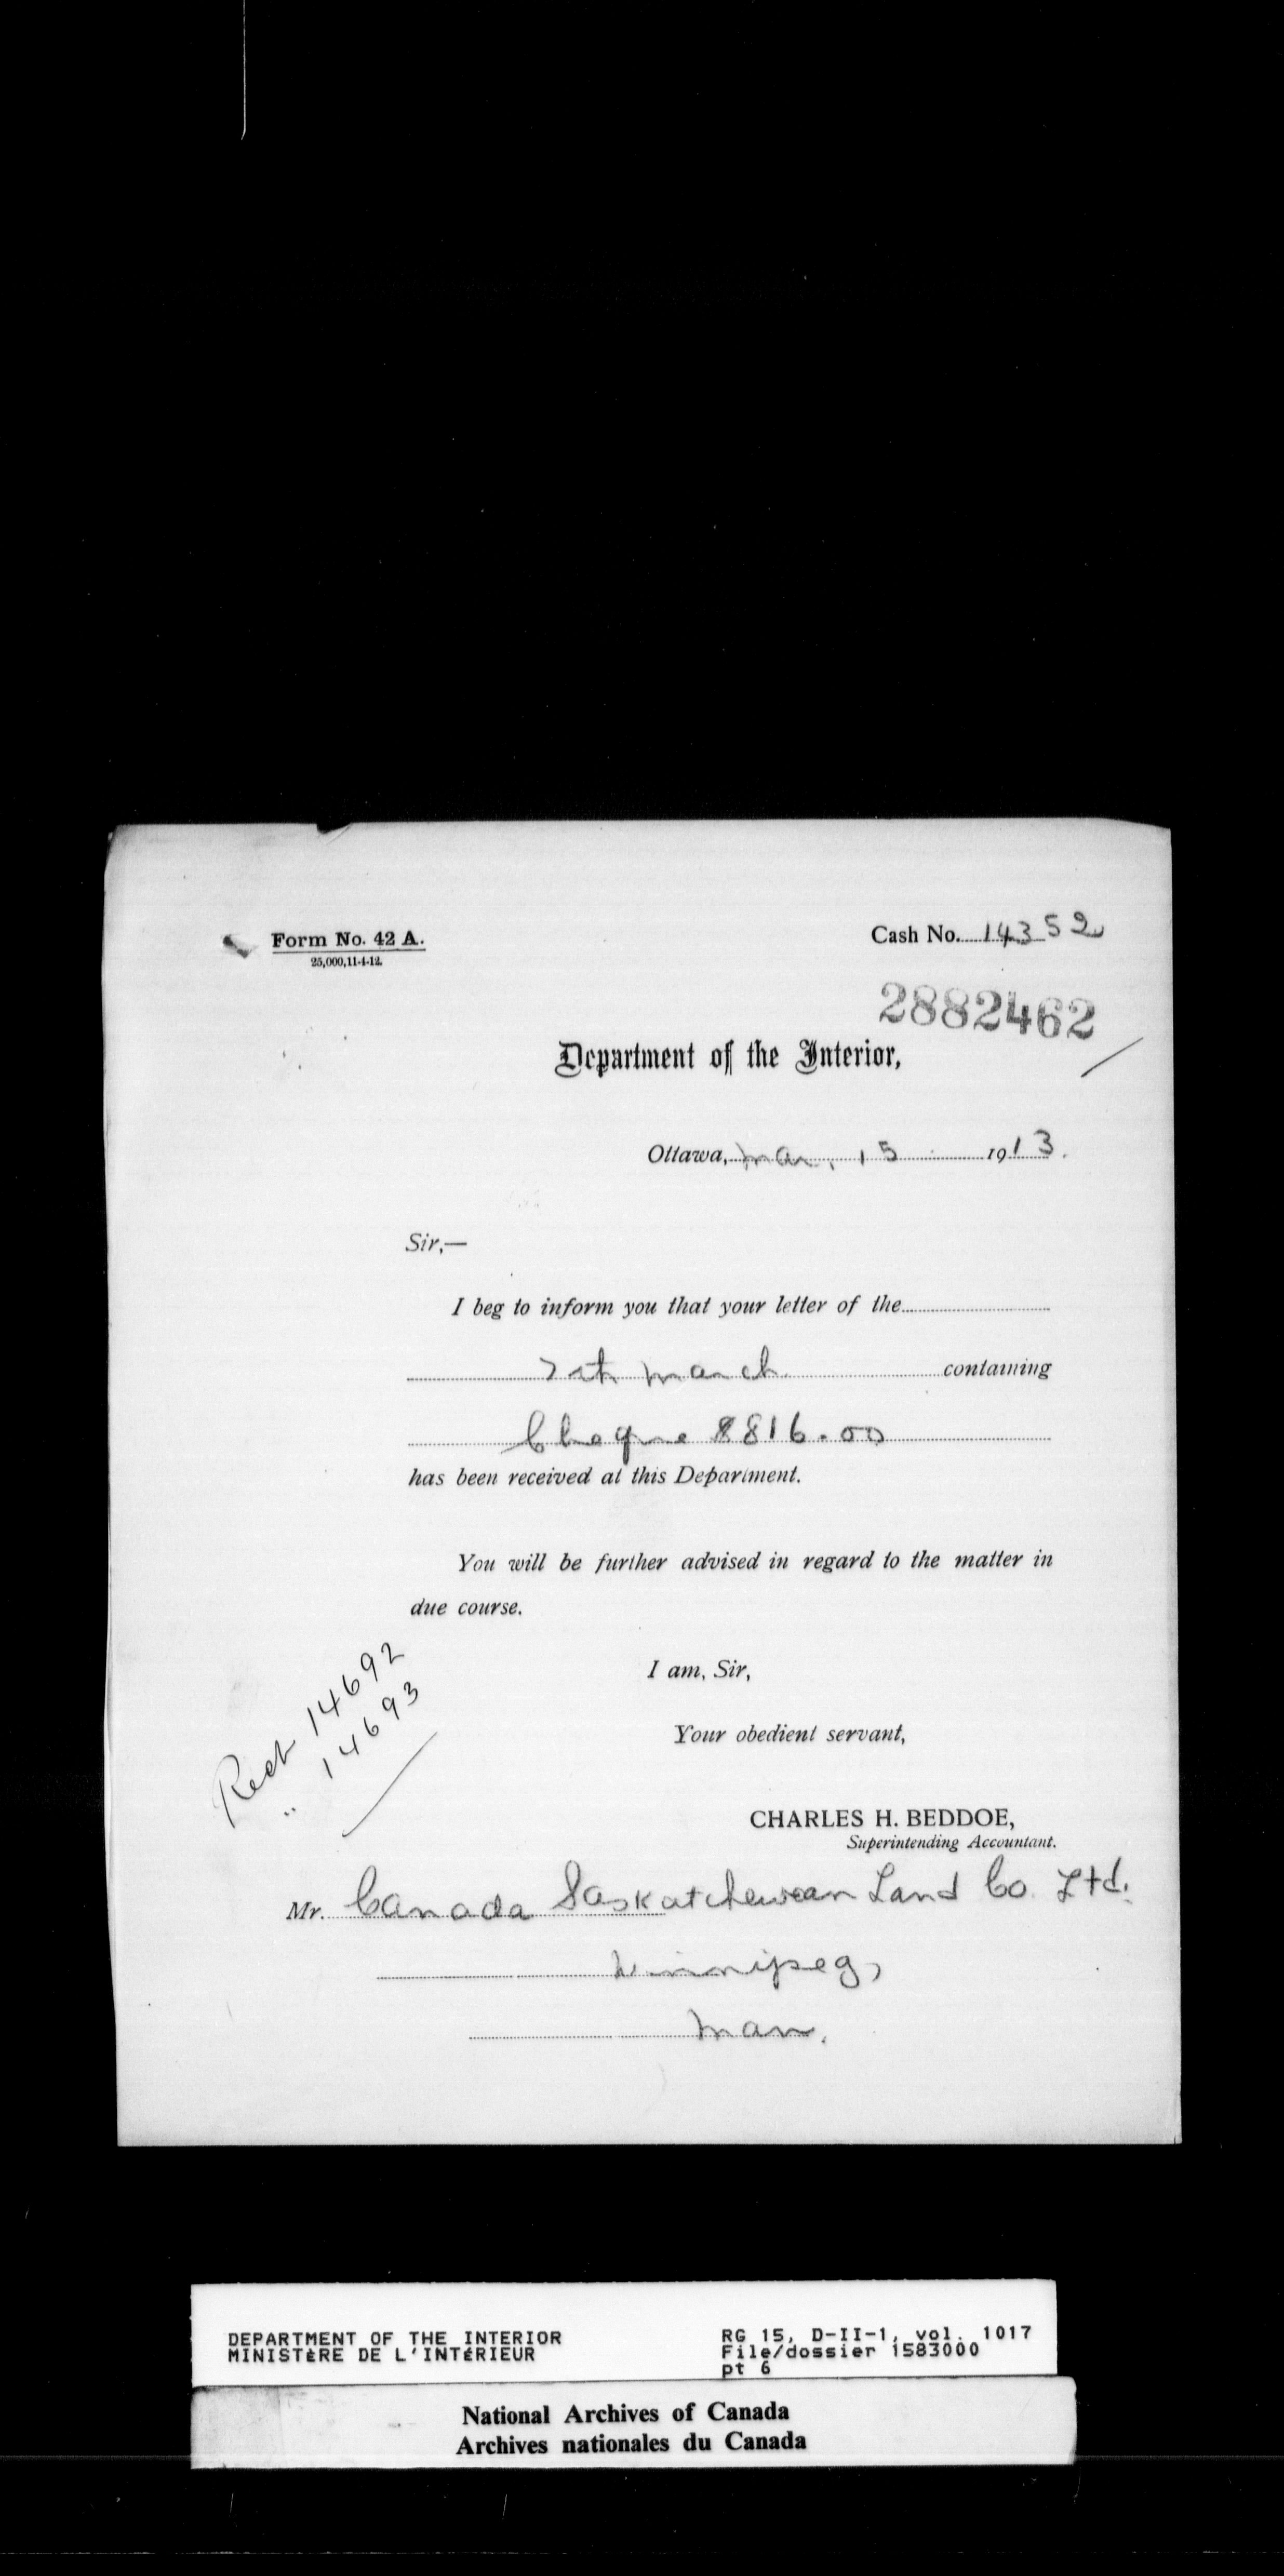 Form No. 42 A.
25,000,11-4-12.
Cash No. 14352
2882462
Department of the Interior,
Ottawa, Mar. 15 1913.
Sir,—
I beg to inform you that your letter of the
7th March containing
Cheque $816.00
has been received at this Department.
You will be further advised in regard to the matter in
due course.
I am, Sir,
Your obedient servant,
Rect 14692
" 14693
CHARLES H. BEDDOE,
Superintending Accountant.
Mr. Canada Saskatchewan Land Co. Ltd.
Winnipeg,
Man.
DEPARTMENT OF THE INTERIOR
MINISTÈRE DE L'INTÉRIEUR
RG 15, D-II-1, vol. 1017
File/dossier 1583000
pt 6
National Archives of Canada
Archives nationales du Canada